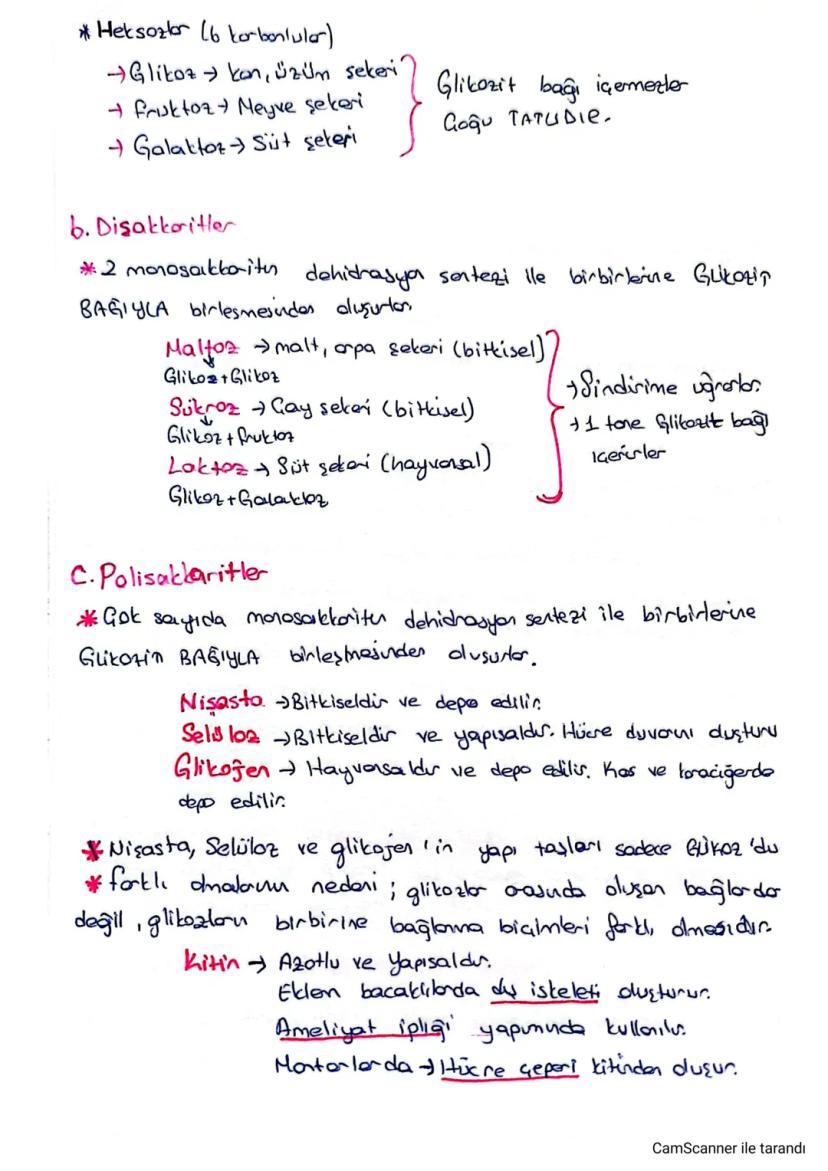 * Heksozlar (6 karbonlular)
→ Glikoz → kan, üzüm şekeri
→ fruktoz → Meyve şekeri
→ Galaktoz → Süt şekeri
Glikozit bağı içermezler
Çoğu TATLIDIR.
b. Disakkaritler
* 2 monosakkaritin dehidrasyon sentezi ile birbirlerine GLİKOZİT
BAĞIYLA birleşmesinden oluşurlar.
Maltoz → malt, arpa şekeri (bitkisel)
Glikoz + Glikoz
Sükroz → Çay şekeri (bitkisel)
Glikoz + fruktoz
Laktoz → Süt şekeri (hayvansal)
Glikoz + Galaktoz
→ Sindirime uğrarlar.
→ 1 tane Glikozit bağı
içerirler
C. Polisakkaritler
* Çok sayıda monosakkaritin dehidrasyon sentezi ile birbirlerine
GLİKOZİT BAĞIYLA birleşmesinden oluşurlar.
Nişasta → Bitkiseldir ve depo edilir.
Selüloz → Bitkiseldir ve yapısaldır. Hücre duvarını oluşturu
Glikojen → Hayvansaldır ve depo edilir. Kas ve karaciğerde
depo edilir.
* Nişasta, Selüloz ve glikojen 'in yapı taşları sadece GLİKOZ 'du
* farklı olmalarının nedeni ; glikozlar arasında oluşan bağlardar
değil, glikozların birbirine bağlanma biçimleri farklı olmasıdır.
Kitin → Azotlu ve Yapısaldır.
Eklem bacaklılarda dış iskeleti oluşturur.
Ameliyat ipliği yapımında kullanılır.
Mantarlarda → Hücre çeperi kitinden oluşur.
CamScanner ile tarandı